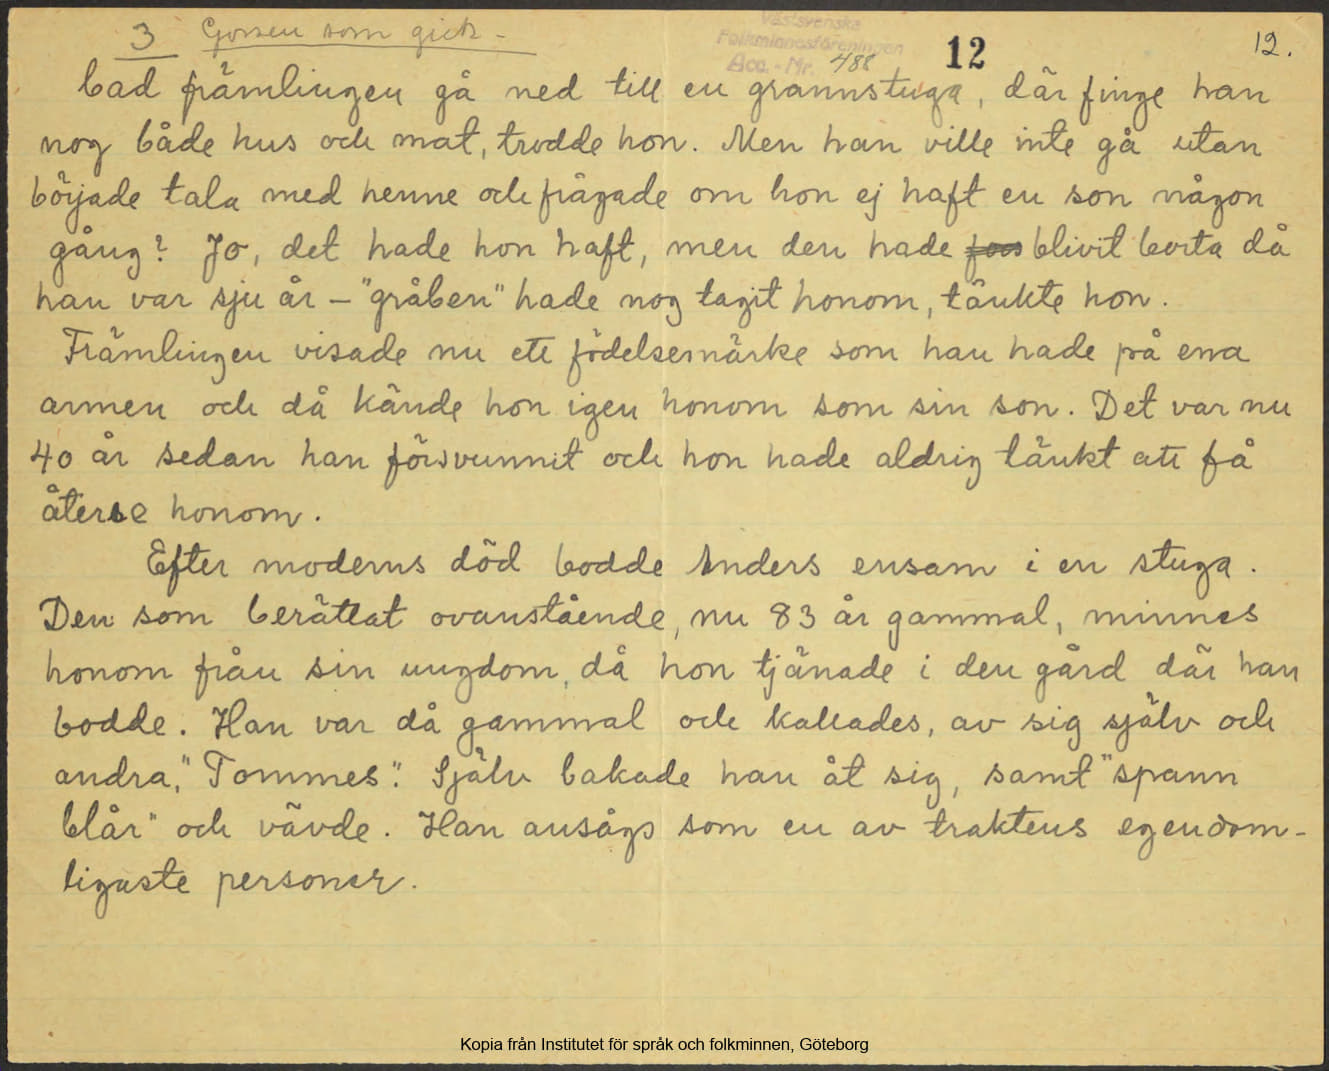 3 Gossen som gick -
Västsvenska
Folkminnesföreningen
Acc. - Nr. 488
12
12.
bad främlingen gå ned till en grannstuga, där finge han
nog både hus och mat, trodde hon. Men han ville inte gå utan
började tala med henne och frågade om hon ej haft en son någon
gång? Jo, det hade hon haft, men den hade blivit borta då
han var sju år – "gråben" hade nog tagit honom, tänkte hon.
Främlingen visade nu ett födelsemärke som han hade på ena
armen och då kände hon igen honom som sin son. Det var nu
40 år sedan han försvunnit och hon hade aldrig tänkt att få
återse honom.
Efter moderns död bodde Anders ensam i en stuga.
Den som berättat ovanstående, nu 83 år gammal, minnes
honom från sin ungdom, då hon tjänade i den gård där han
bodde. Han var då gammal och kallades, av sig själv och
andra, "Tommes". Själv bakade han åt sig, samt "spann
blår" och vävde. Han ansågs som en av traktens egendom-
ligaste personer.
Kopia från Institutet för språk och folkminnen, Göteborg